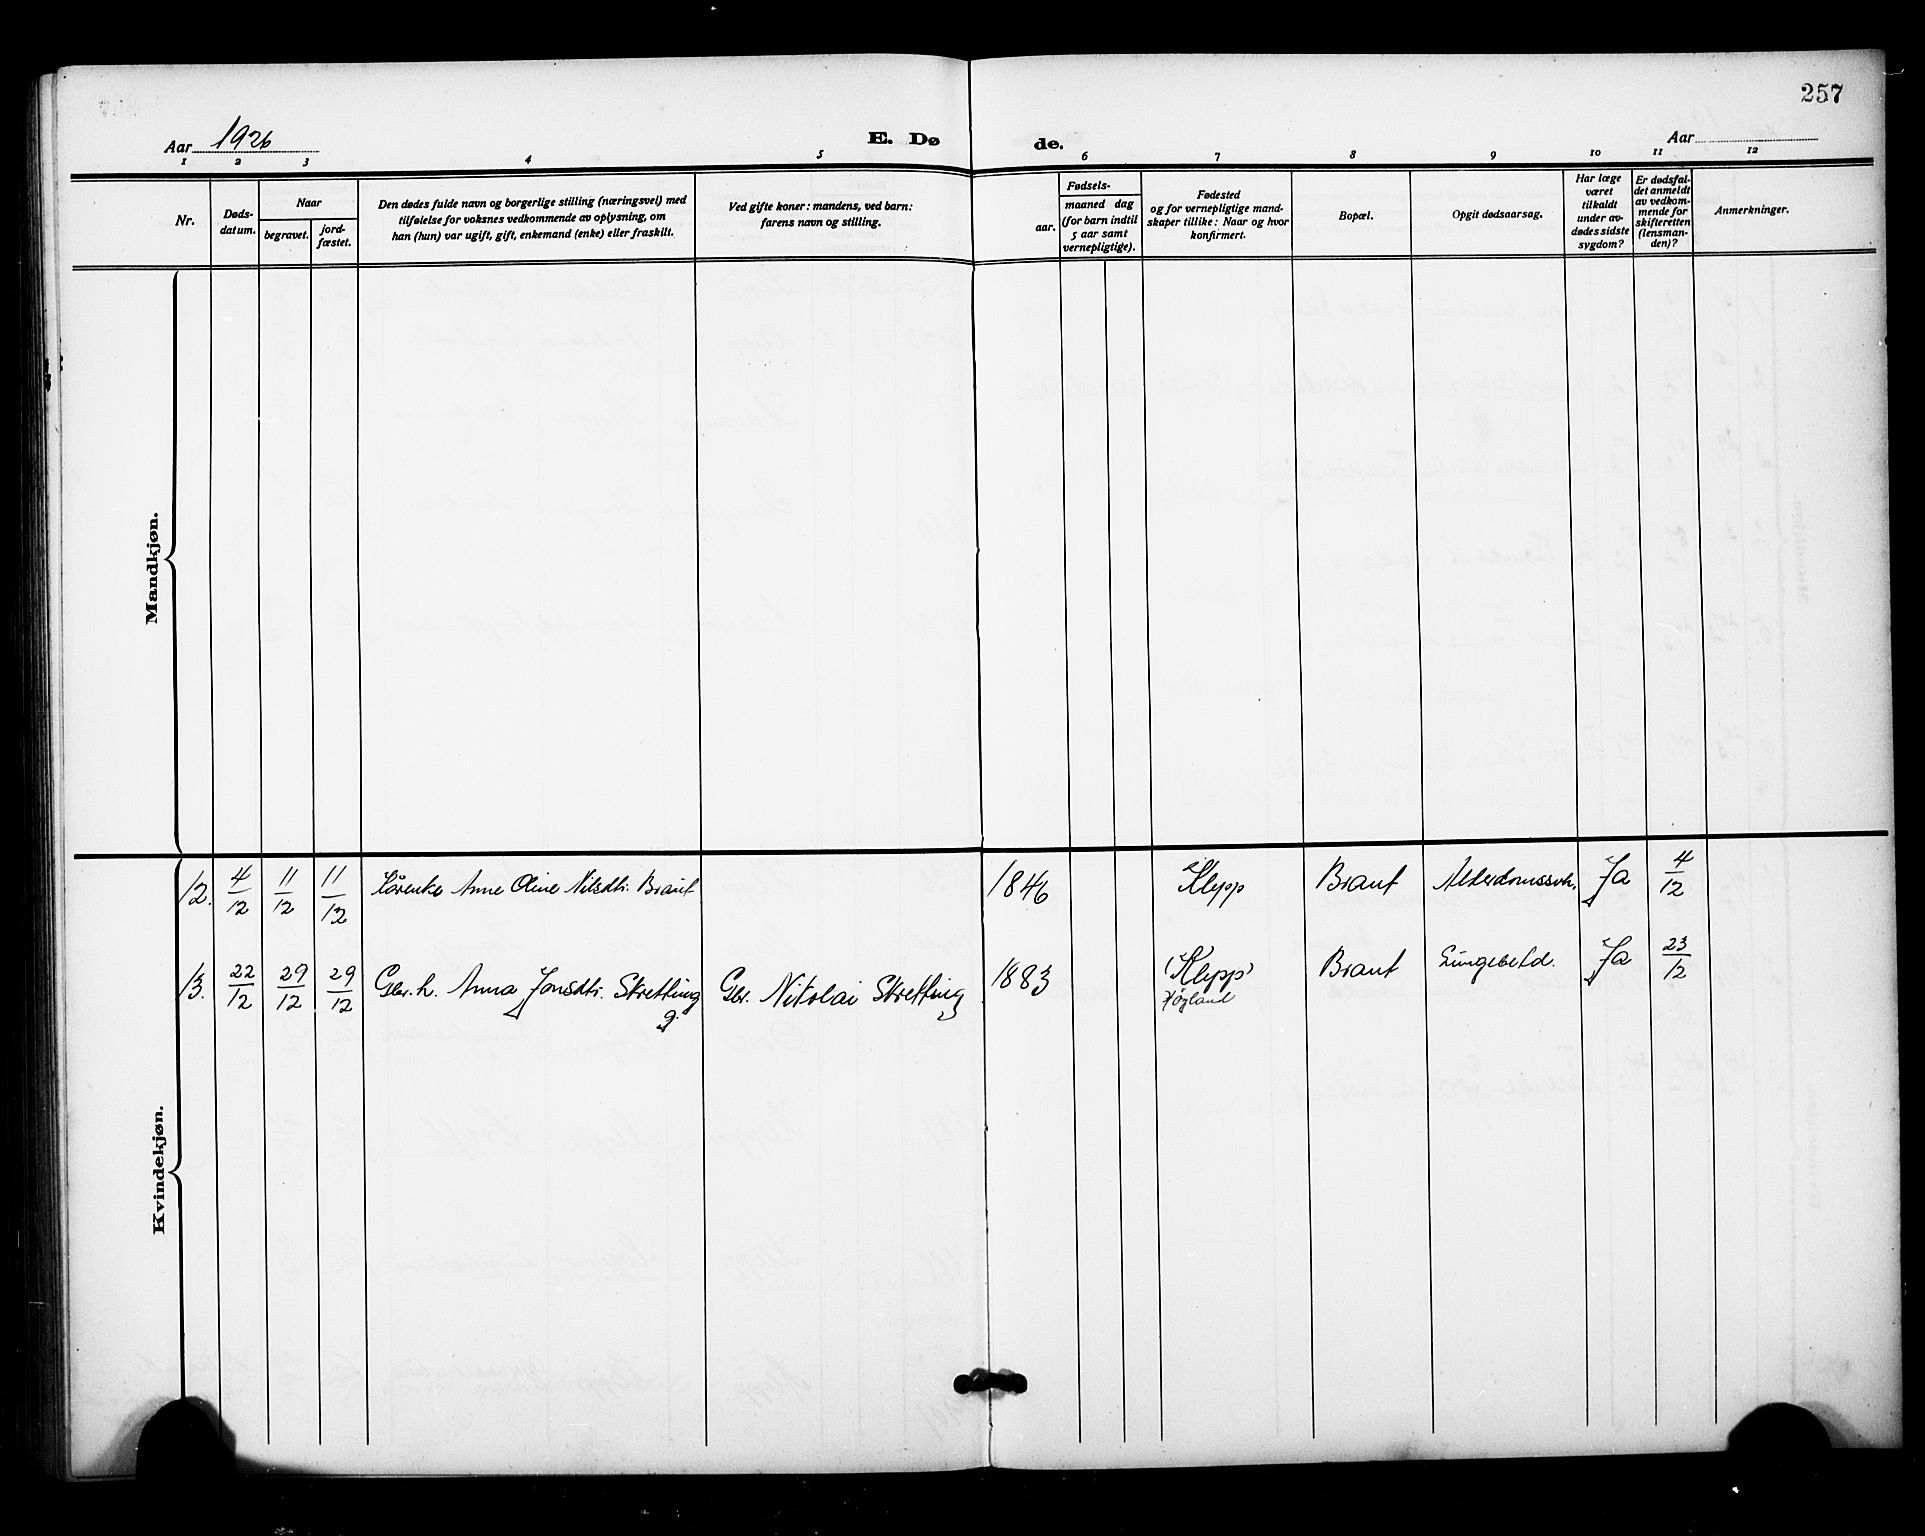 257
Aar 1926
E. Dø
de.
Aar
1 2 3 4 5 6 7 8 9 10 11 12
Nr.
Døds-
datum.
Naar
begravet.
jord-
fæstet.
Den dødes fulde navn og borgerlige stilling (næringsvei) med
tilføielse for voksnes vedkommende av oplysning, om
han (hun) var ugift, gift, enkemand (enke) eller fraskilt.
Ved gifte koner: mandens, ved barn:
farens navn og stilling.
Fødsels-
aar.
maaned dag
(for barn indtil
5 aar samt
vernepligtige).
Fødested
og for vernepligtige mand-
skaper tillike: Naar og hvor
konfirmert.
Bopæl.
Opgit dødsaarsøg.
Har læge
været
tilkaldt
under av-
dødes sidste
sygdom?
Er dødsfal-
det anmeldt
av vedkom-
mende for
skifteretten
(lensman-
den)?
Anmerkninger.
Mandkjøn.
Kvindekjøn.
12. 4/12 11/12 11/12 Kårenke Anne Oline Nilsdtr. Braut 1846 Klepp Braut Alderdomssvk. Ja 4/12
13. 22/12 29/12 29/12 Gbr. h. Anna Jonsdtr. Skretting Gbr. Nikolai Skretting 1883 Klepp Braut Lungebetd. Ja 23/12
g.
Høgland